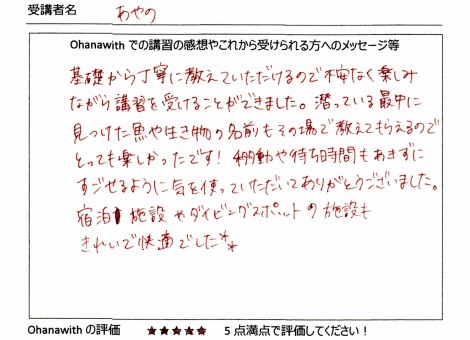 受講者名 あやの
Ohanawith での講習の感想やこれから受けられる方へのメッセージ等
基礎から丁寧に教えていただけるので不安なく楽しみ
ながら講習を受けることができました。潜っている最中に
見つけた魚や生き物の名前もその場で教えてもらえるので
とっても楽しかったです！移動や待ち時間もあきずに
すごせるように気を使っていただいてありがとうございました。
宿泊施設やダイビングスポットの施設も
きれいで快適でした**
Ohanawith の評価 ★★★★★ 5点満点で評価してください！